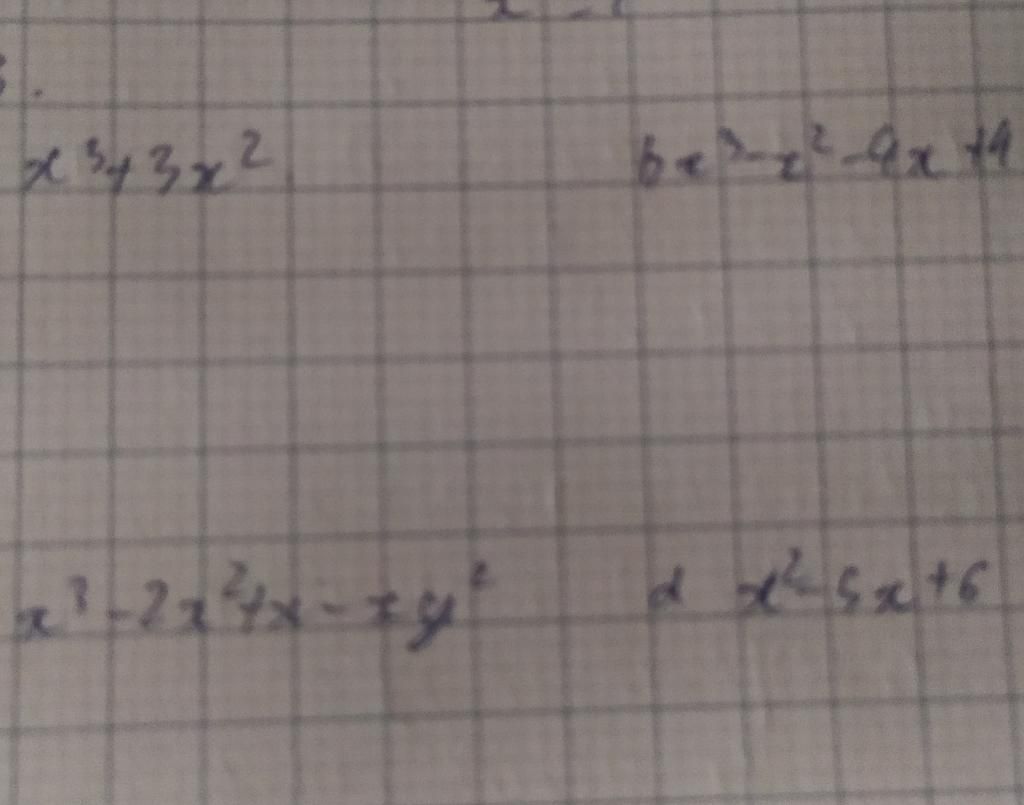 3.
x³+3x² b x³-x²-9x+9
x³-2x²+x-xy² d x²-5x+6